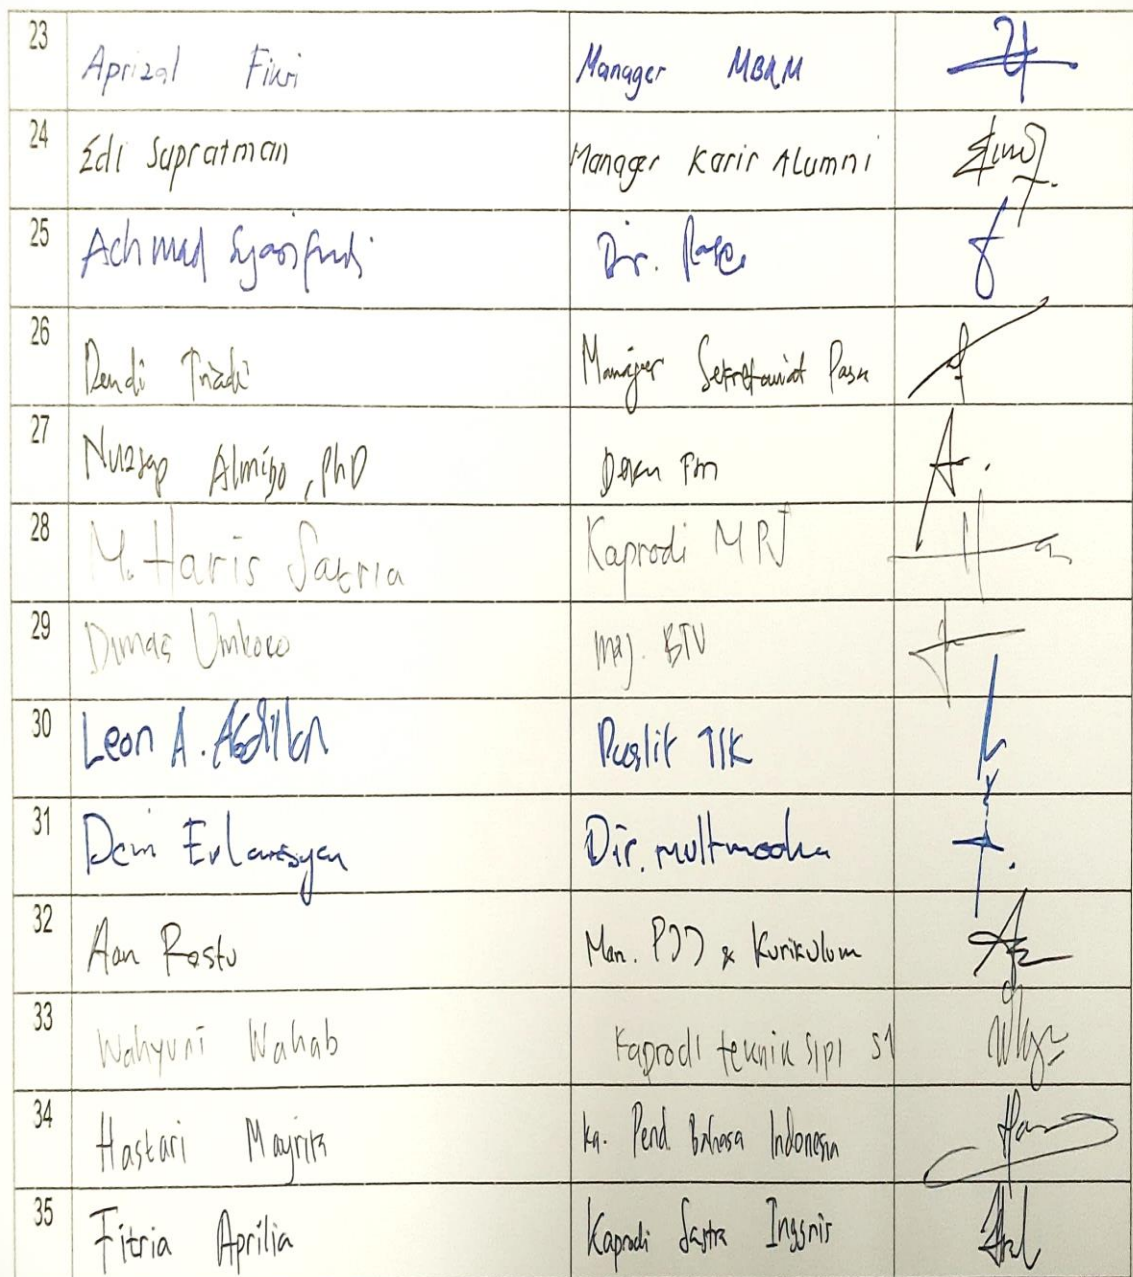 23 Aprizal Fikri Manager MBKM
24 Edi Supratman Manager Karir Alumni
25 Achmad Syarifudi Dir. Pasca
26 Dendi Triadi Manajer Sekretariat Pasca
27 Almigo, PhD Dekan
28 M. Haris Satria Kaprodi
29 Dimas BTU
30 Leon A. Abdillah Puslit TIK
31 Dir. multimedia
32 Aan Restu Man. PJJ & Kurikulum
33 Wahyuni Wahab Kaprodi teknik sipil S1
34 Hastari Mayrita Ka. Pend Bahasa Indonesia
35 Fitria Aprilia Kaprodi Sastra Inggris